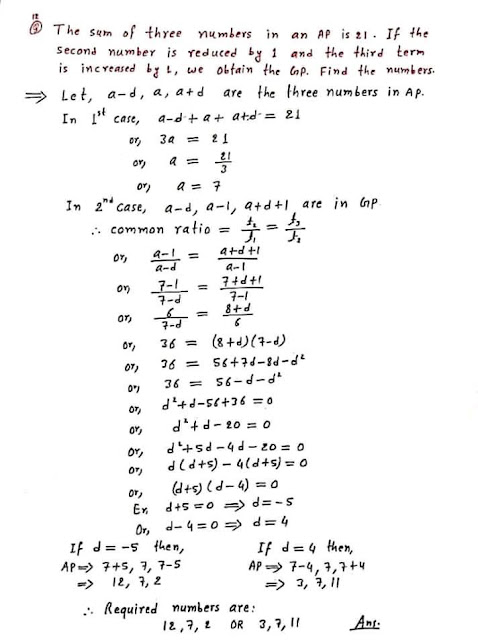 12
③ The sum of three numbers in an AP is 21. If the
second number is reduced by 1 and the third term
is increased by 1, we obtain the GP. Find the numbers.
⇒ Let, a-d, a, a+d are the three numbers in AP.
In 1st case, a-d+a+a+d = 21
or, 3a = 21
or, a = 21/3
or, a = 7
In 2nd case, a-d, a-1, a+d+1 are in GP.
∴ common ratio = t₂/t₁ = t₃/t₂
or, (a-1)/(a-d) = (a+d+1)/(a-1)
or, (7-1)/(7-d) = (7+d+1)/(7-1)
or, 6/(7-d) = (8+d)/6
or, 36 = (8+d)(7-d)
or, 36 = 56+7d-8d-d²
or, 36 = 56-d-d²
or, d²+d-56+36 = 0
or, d²+d-20 = 0
or, d²+5d-4d-20 = 0
or, d(d+5)-4(d+5) = 0
or, (d+5)(d-4) = 0
Er, d+5=0 ⇒ d=-5
Or, d-4=0 ⇒ d=4
If d = -5 then,
AP ⇒ 7+5, 7, 7-5
⇒ 12, 7, 2
If d = 4 then,
AP ⇒ 7-4, 7, 7+4
⇒ 3, 7, 11
∴ Required numbers are:
12, 7, 2 OR 3, 7, 11 Ans.